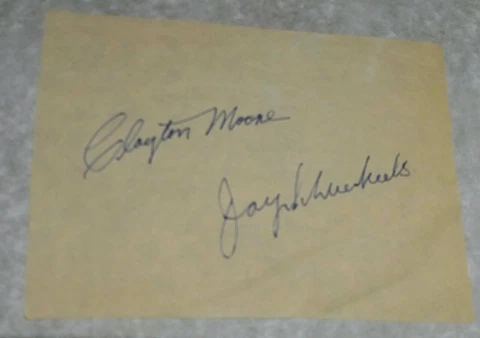 Clayton Moore
Jay Silverheels